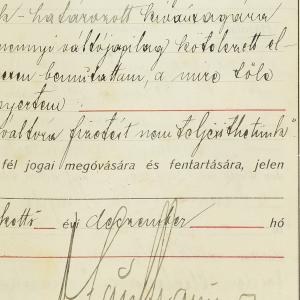 k - határozott kívánságára
mennyi váltójogilag kötelezett el-
bemutattam, a mire tőle
nyertem
váltóra fizetést nem teljesíthetünk"
fél jogai megóvására és fentartására, jelen
kettő évi december hó